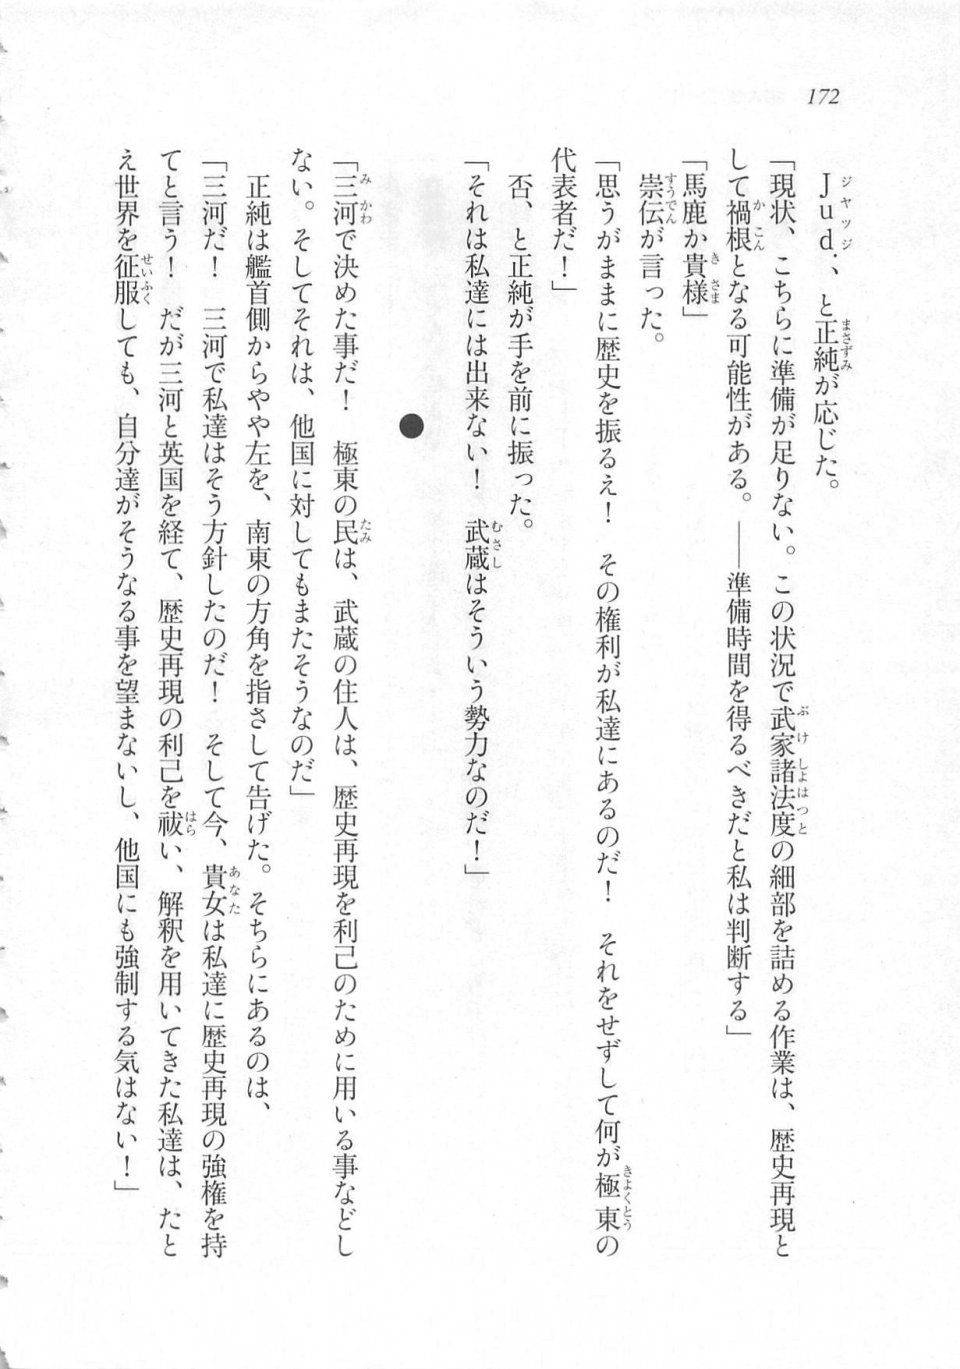 172
Jud.、と正純が応じた。
「現状、こちらに準備が足りない。この状況で武家諸法度の細部を詰める作業は、歴史再現と
して禍根となる可能性がある。――準備時間を得るべきだと私は判断する」
「馬鹿か貴様」
崇伝が言った。
「思うがままに歴史を振るえ！　その権利が私達にあるのだ！　それをせずして何が極東の
代表者だ！」
否、と正純が手を前に振った。
「それは私達には出来ない！　武蔵はそういう勢力なのだ！」
●
「三河で決めた事だ！　極東の民は、武蔵の住人は、歴史再現を利己のために用いる事などし
ない。そしてそれは、他国に対してもまたそうなのだ」
正純は艦首側からやや左を、南東の方角を指さして告げた。そちらにあるのは、
「三河だ！　三河で私達はそう方針したのだ！　そして今、貴女は私達に歴史再現の強権を持
てと言う！　だが三河と英国を経て、歴史再現の利己を祓い、解釈を用いてきた私達は、たと
え世界を征服しても、自分達がそうなる事を望まないし、他国にも強制する気はない！」